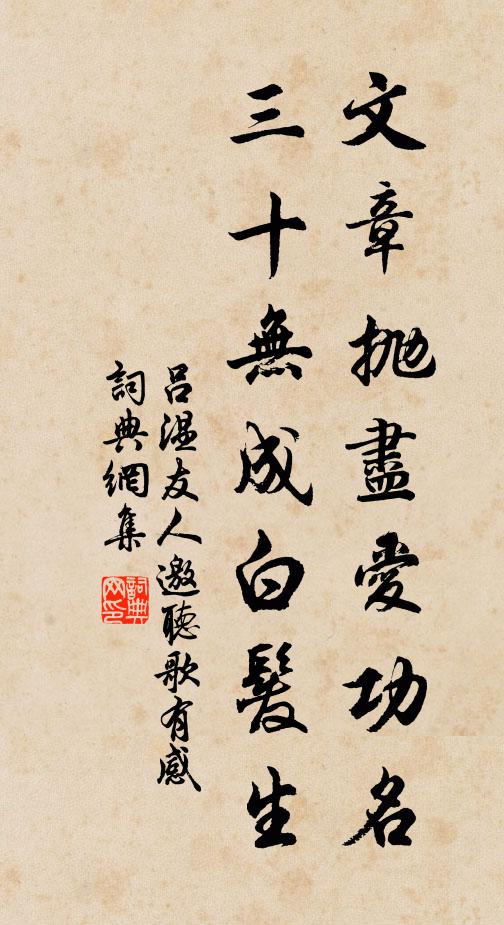 文章拋盡愛功名
三十無成白髮生
呂溫友人邀聽歌有感
詞典網集
詞典
网印